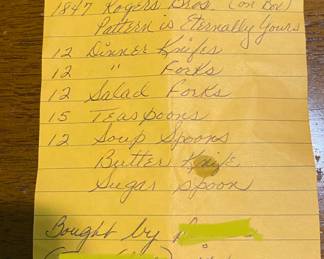 1847 Rogers Bros. (on Box)
Pattern is Eternally Yours
12 Dinner Knifes
12 " Forks
12 Salad Forks
15 Teaspoons
12 Soup Spoons
Butter Knife
Sugar Spoon
Bought by